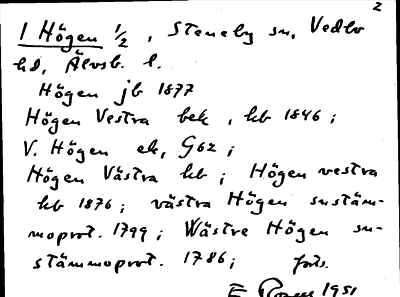 2
1 Högen 1/2, Steneby sn, Vedbo
hd, Älvsb. l.
Högen jb 1877
Högen Vestra bek, hb 1846;
V. Högen ek, G62;
Högen Västra hb; Högen vestra
hb 1876; västra Högen sustäm-
moprot. 1799; Wästre Högen su-
stämmoprot. 1786; forts.
E 1951